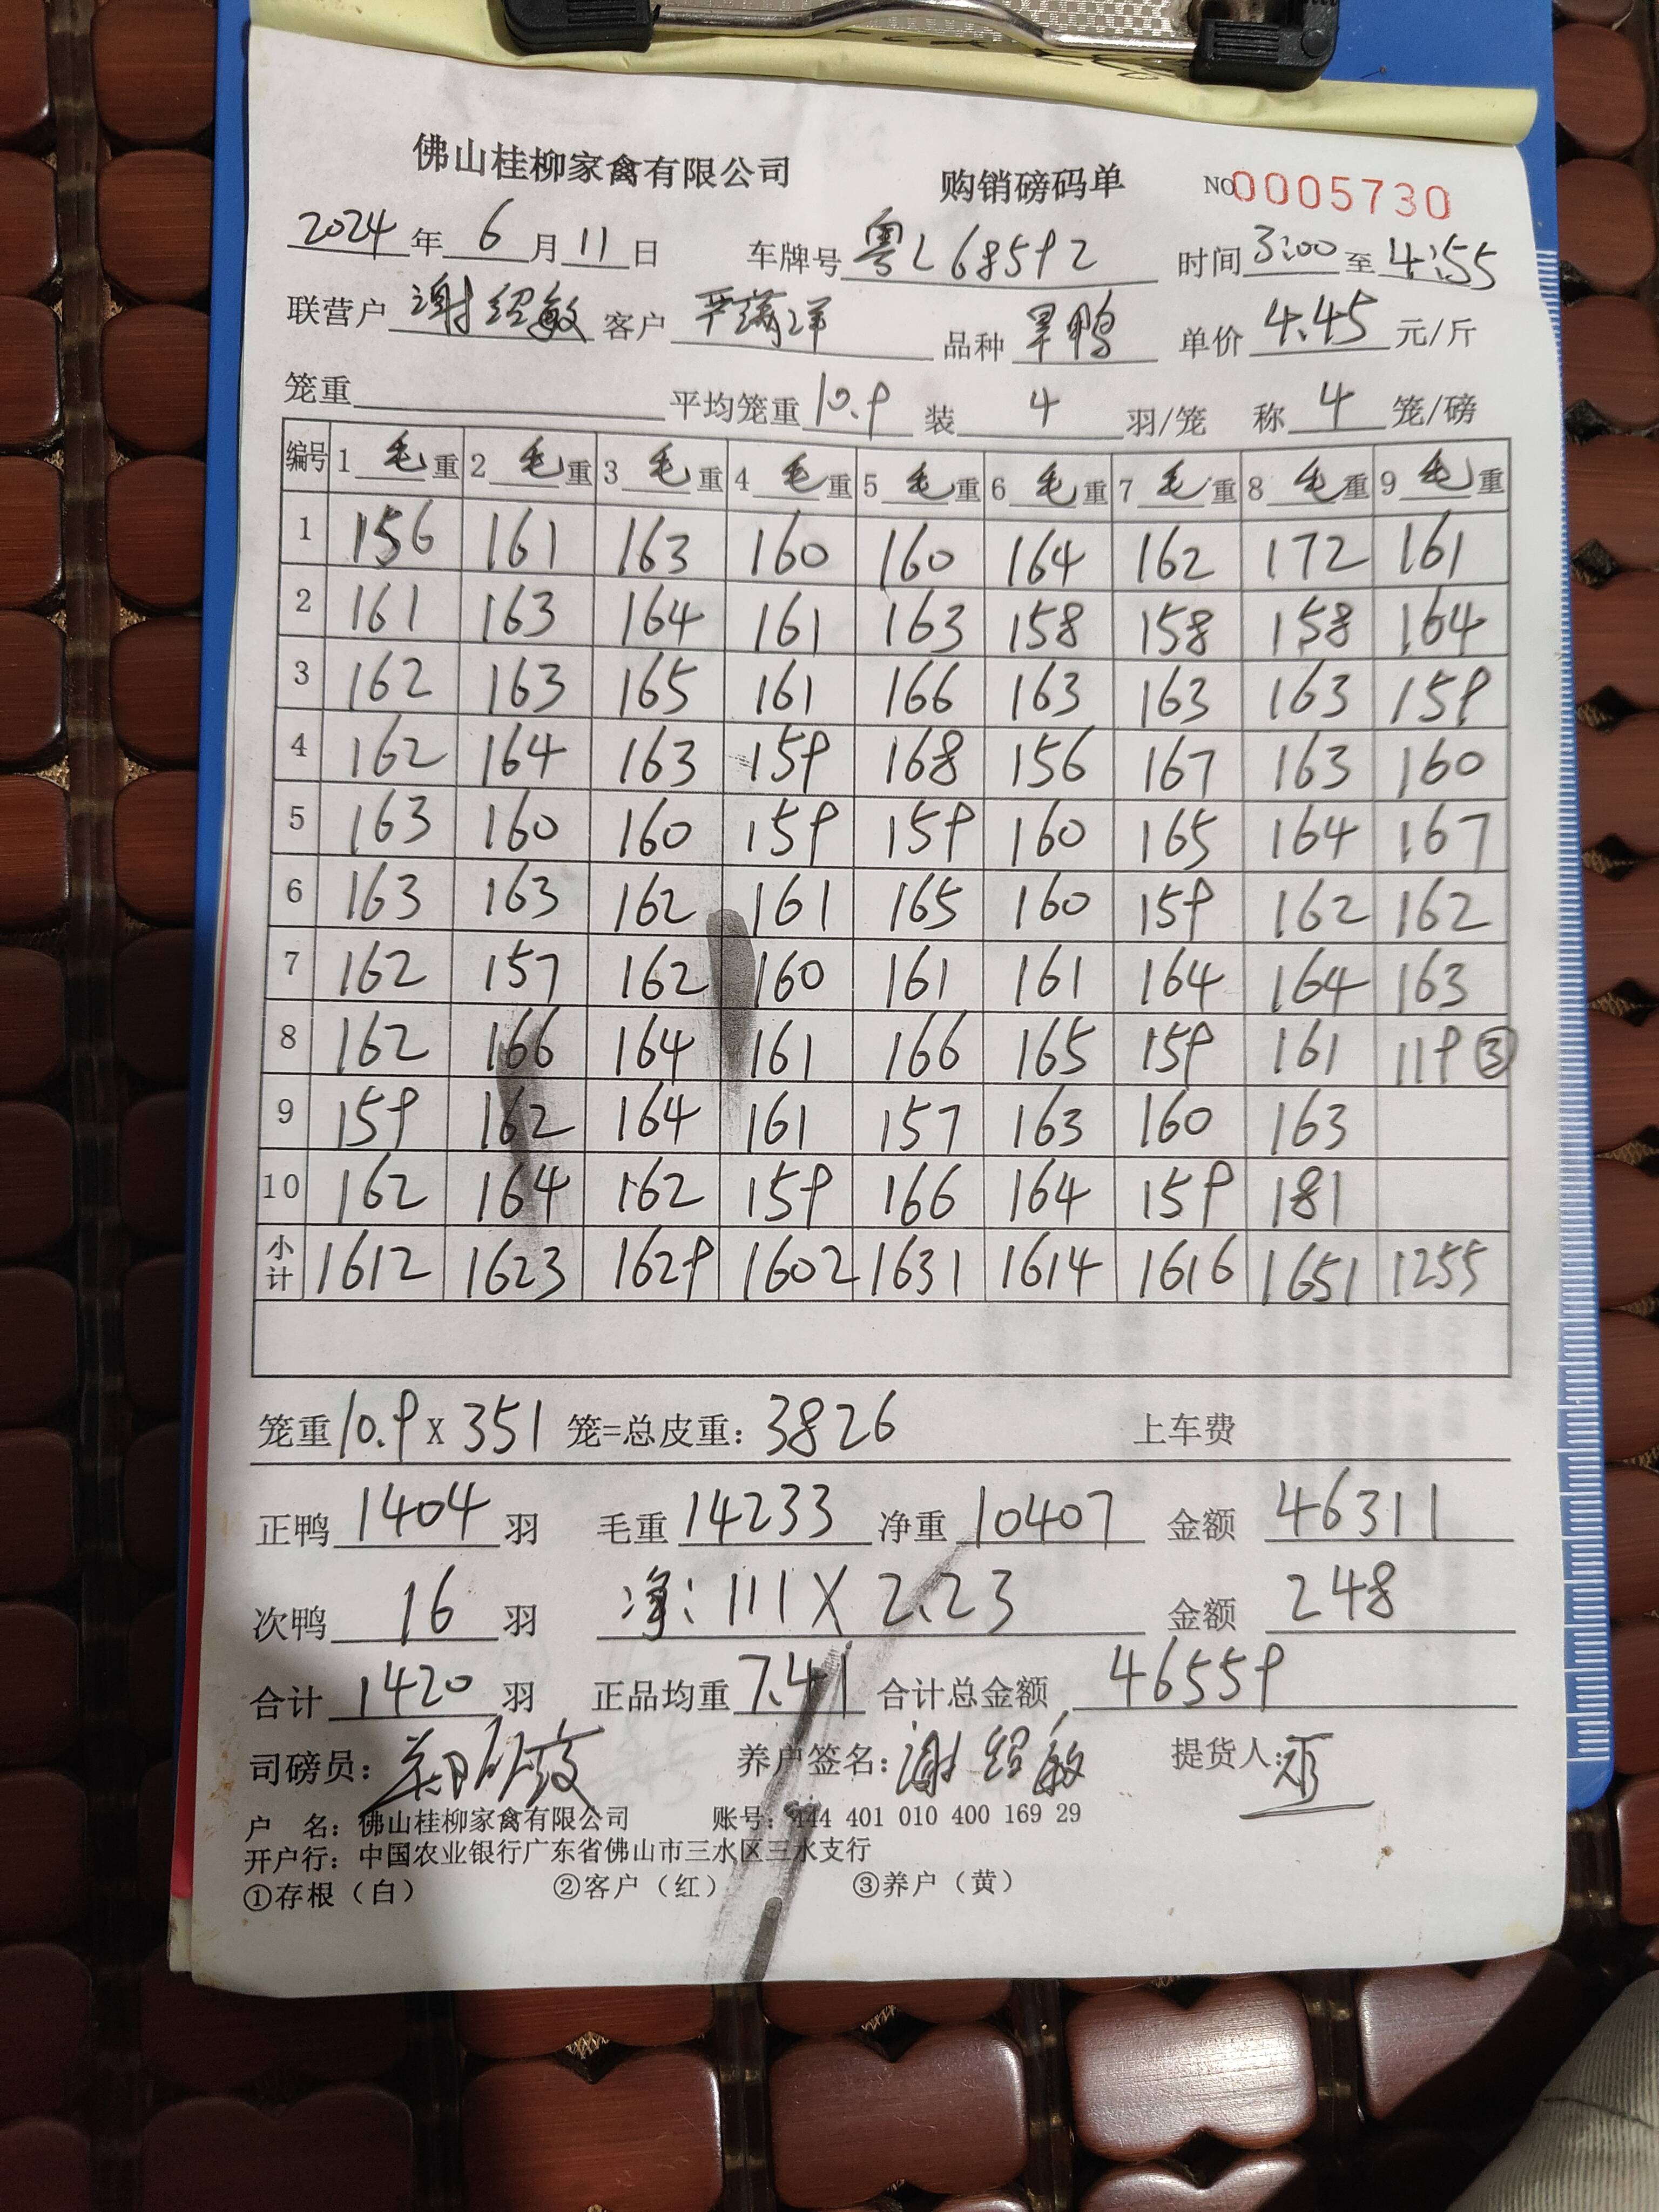 佛山桂柳家禽有限公司 购销磅码单 NO0005730
2024年6月11日 车牌号 粤L68592 时间3:00至4:55
联营户 谢绍敏 客户 品种 旱鸭 单价 4.45 元/斤
笼重 平均笼重 10.9 装 4 羽/笼 称 4 笼/磅
编号 1 毛重 2 毛重 3 毛重 4 毛重 5 毛重 6 毛重 7 毛重 8 毛重 9 毛重
1 156 161 163 160 160 164 162 172 161
2 161 163 164 161 163 158 158 158 164
3 162 163 165 161 166 163 163 163 159
4 162 164 163 159 168 156 167 163 160
5 163 160 160 159 159 160 165 164 167
6 163 163 162 161 165 160 159 162 162
7 162 157 162 160 161 161 164 164 163
8 162 166 164 161 166 165 159 161 119 ③
9 159 162 164 161 157 163 160 163
10 162 164 162 159 166 164 159 181
小计 1612 1623 1629 1602 1631 1614 1616 1651 1255
笼重10.9 x 351 笼=总皮重: 3826 上车费
正鸭 1404 羽 毛重 14233 净重 10407 金额 46311
次鸭 16 羽 净: 111 X 2.23 金额 248
合计 1420 羽 正品均重 7.41 合计总金额 46559
司磅员: 养户签名: 谢绍敏 提货人:
户 名: 佛山桂柳家禽有限公司 账号: 444 401 010 400 169 29
开户行: 中国农业银行广东省佛山市三水区三水支行
①存根（白） ②客户（红） ③养户（黄）